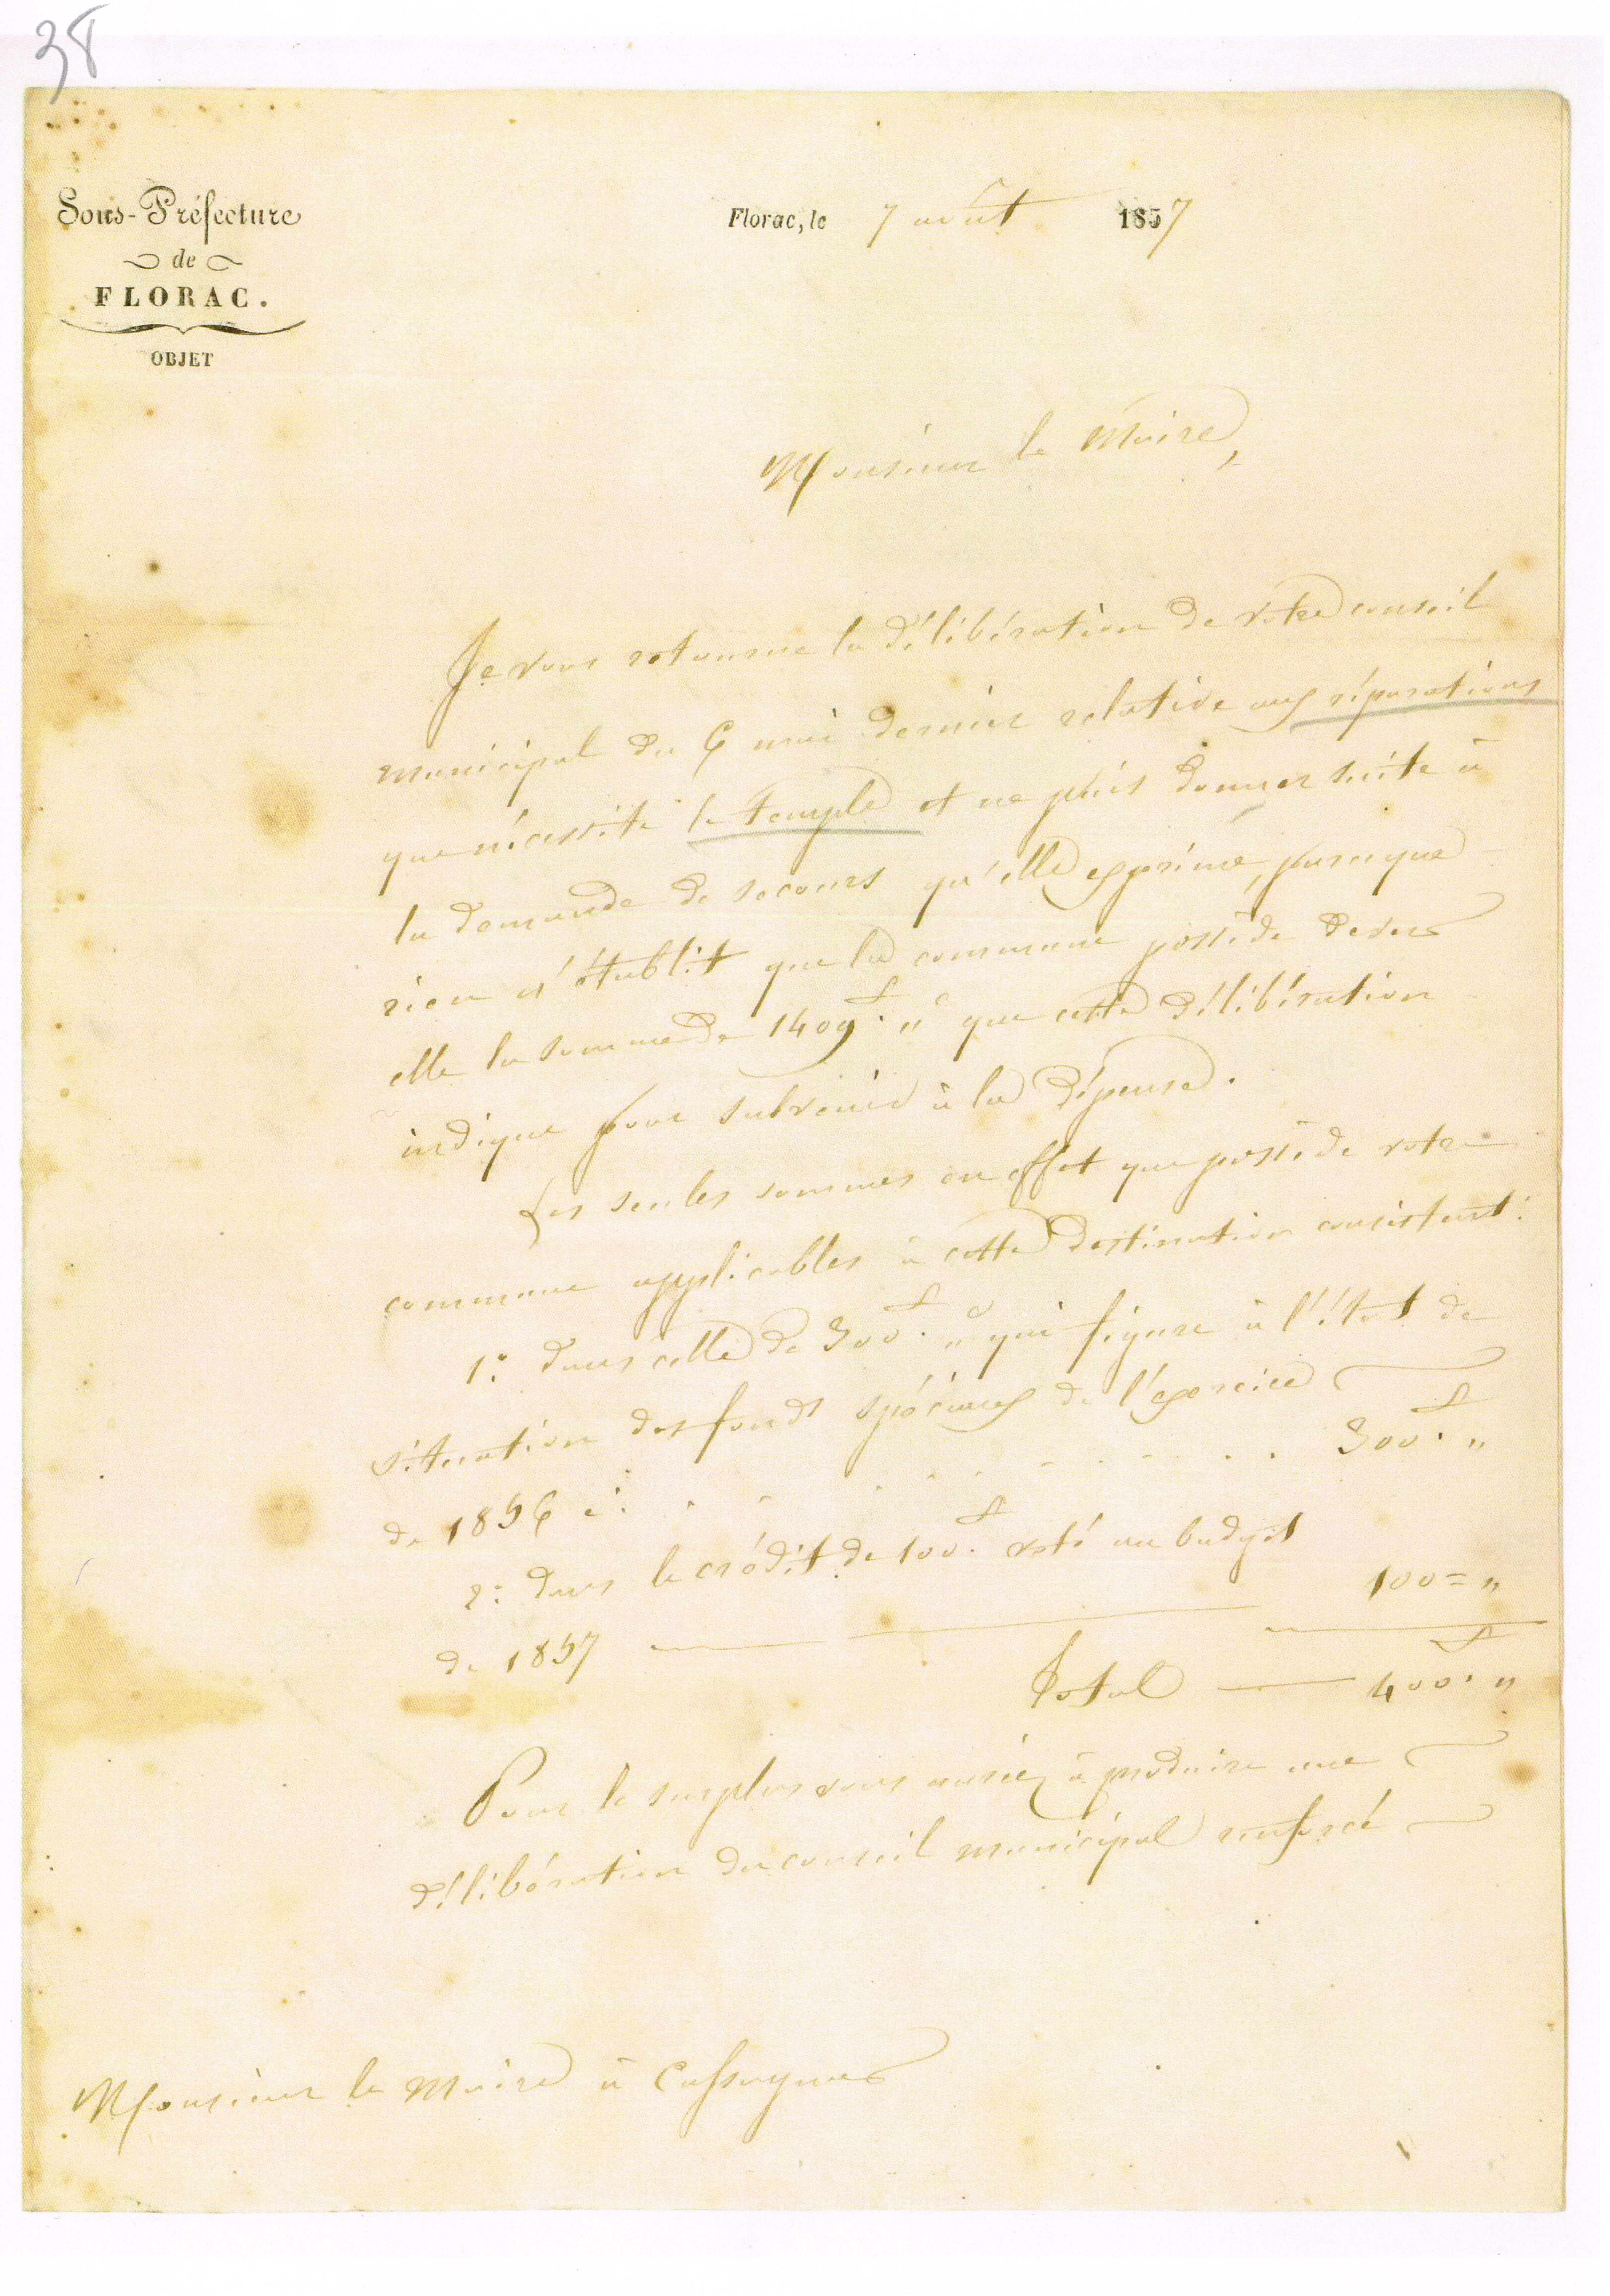 38
Sous-Préfecture
de
FLORAC.
OBJET
Florac, le 7 août 1857
Monsieur le Maire,
Je vous retourne la délibération de votre conseil
municipal du 6 mai dernier relative aux réparations
que nécessite le temple et ne puis donner suite à
la demande de secours qu'elle exprime, parceque
rien n'établit que la commune possède devers
elle la somme de 1409f. " que cette délibération
indique pour subvenir à la dépense.
Les seules sommes en effet que possède votre
commune applicables à cette destination consistent:
1° dans celle de 300f. " qui figure à l'état de
situation des fonds spéciaux de l'exercice
de 1856 ci. . . . . . . . . . . 300f. "
2° dans le crédit de 100f. voté au budget
de 1857 — 100 = "
Total — 400f. "
Pour le surplus vous auriez à produire une
délibération du conseil municipal renforcé
Monsieur le Maire à Cassagnas